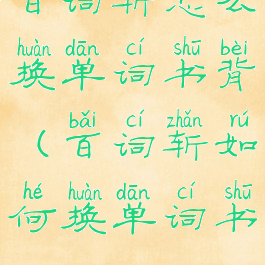 百词斩怎么
huàn dān cí shū bèi
换单词书背
bǎi cí zhǎn rú
(百词斩如
hé huàn dān cí shū
何换单词书